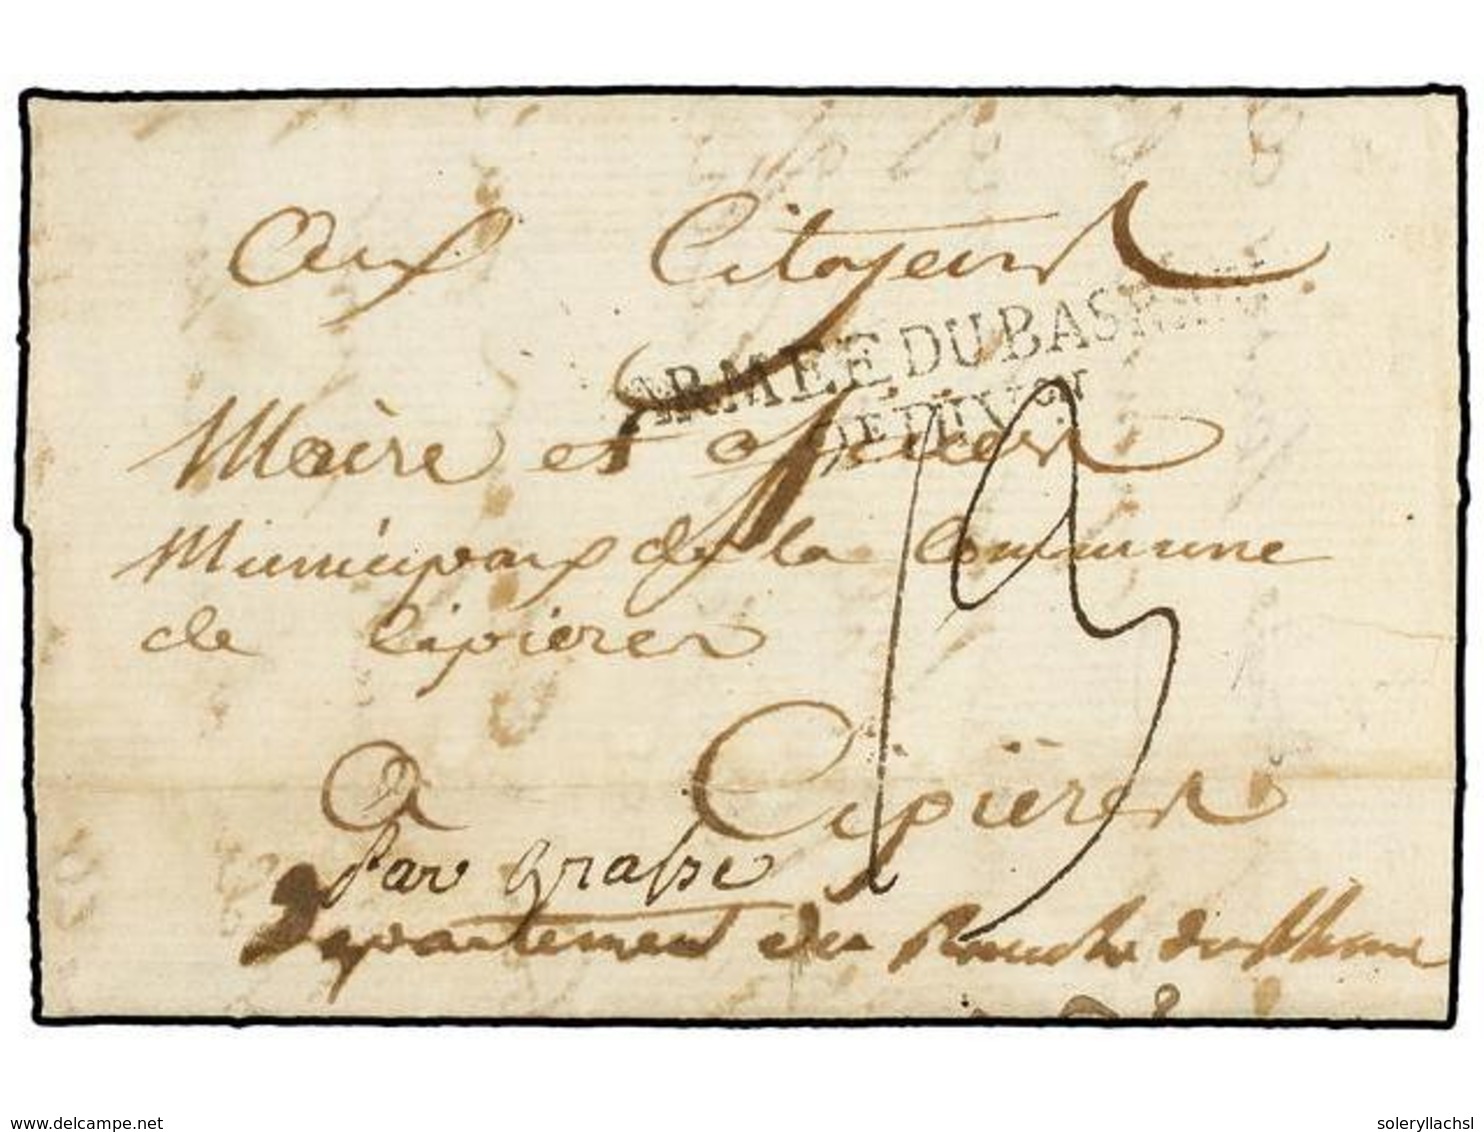 Aux Citoyens
ARMEE DU BAS RHIN
DE DIV.on
Maire et officiers
Municipaux de la Commune
de Cipieres
13
A Cipières
Par Grasse
Departement du Bouche du Rhone
delcampe.net
soleryllachsl